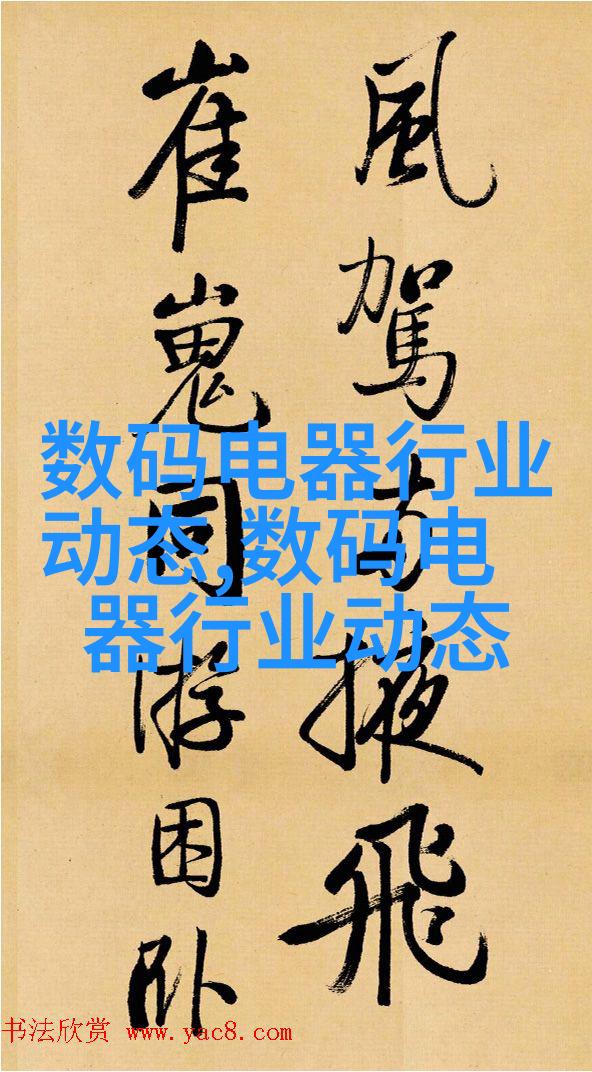 風駕掖飛
崔嵬同游困卧
数码电器行业
动态,数码电
器行业动态
书法欣赏 www.yac8.com